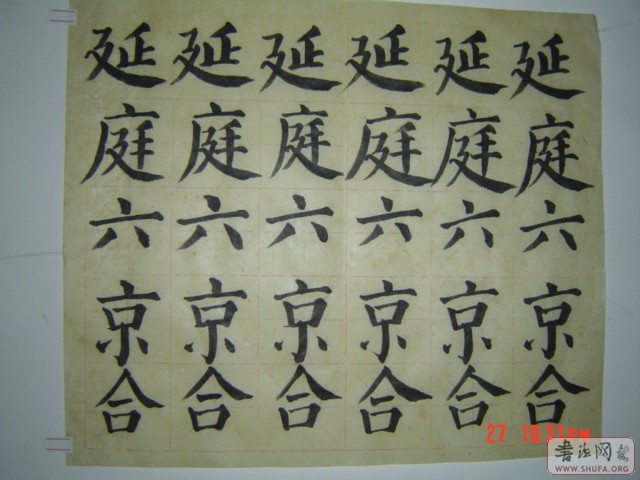 延延延延延延
庭庭庭庭庭庭
六六六六六六
京京京京京京
合合合合合合
27 10:37 PM
书法网
WWW.SHUFA.ORG